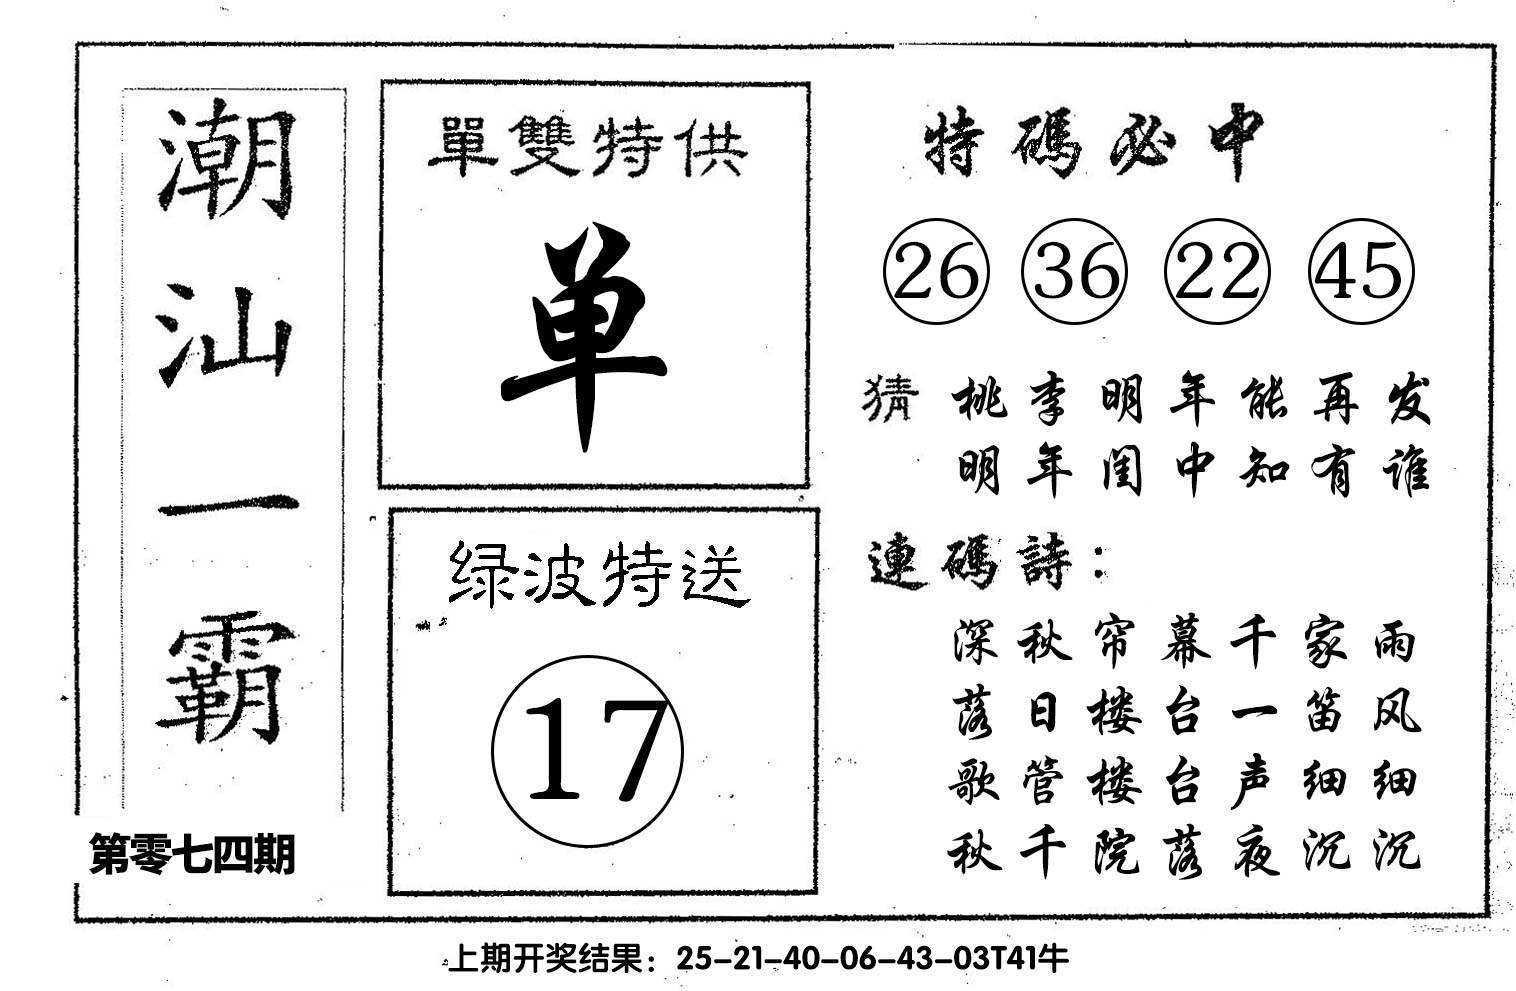 潮汕一霸
第零七四期
單雙特供
单
绿波特送
17
特碼必中
26 36 22 45
猜 桃李明年能再发
明年闺中知有谁
連碼詩：
深秋帘幕千家雨
落日楼台一笛风
歌管楼台声细细
秋千院落夜沉沉
上期开奖结果：25-21-40-06-43-03T41牛